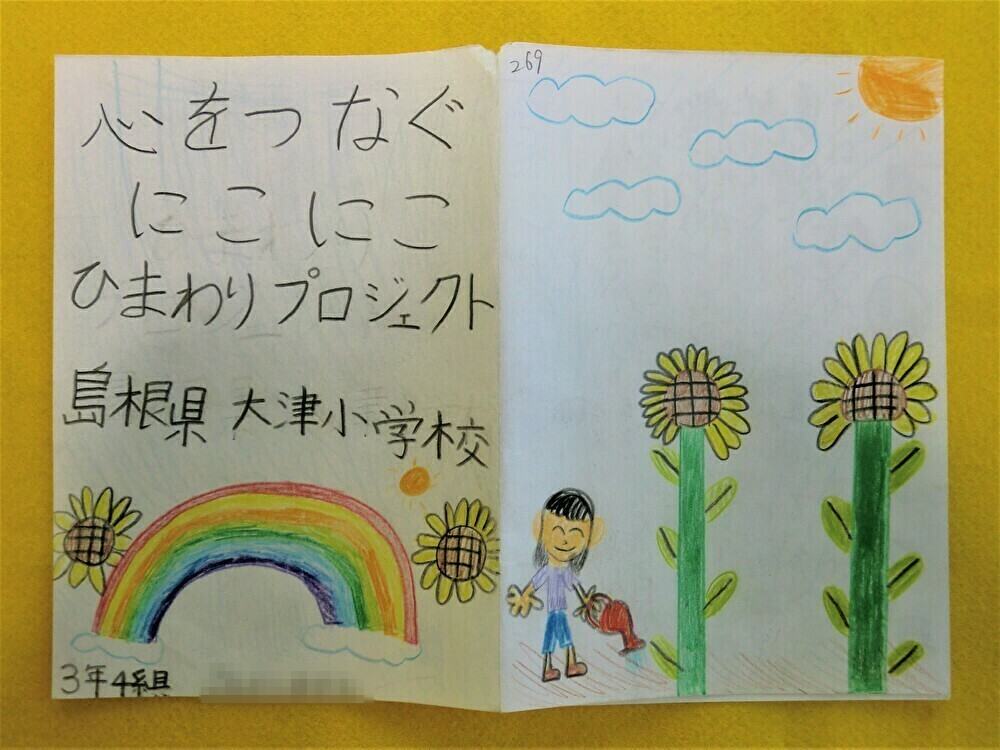 心をつなぐ
にこにこ
ひまわりプロジェクト
島根県 大津小学校
3年4組
269